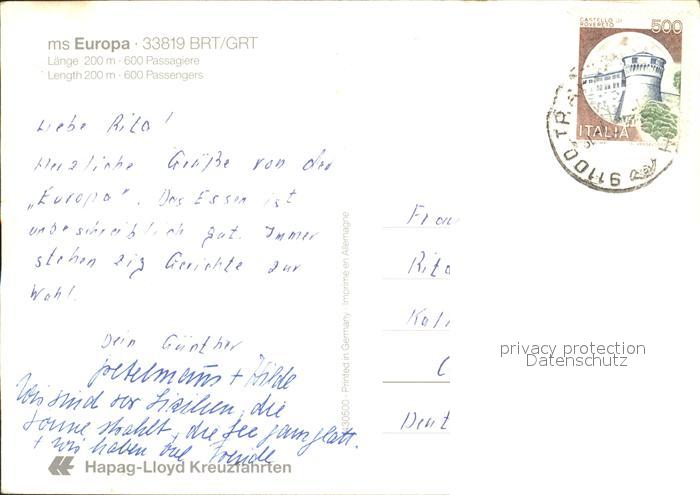 ms Europa · 33819 BRT/GRT
Länge 200 m · 600 Passagiere
Length 200 m · 600 Passengers
CASTELLO DI
ROVERETO
500
ITALIA
91100 TRA
Liebe Rita!
Herzliche Grüße von der
„Europa". Das Essen ist
unbeschreiblich gut. Immer
stehen zig Gerichte zur
Wahl.
Dein Günther
+ Hilde
Wir sind vor Sizilien, die
Sonne strahlt, die See ganz glatt.
+ wir haben viel Freude
Hapag-Lloyd Kreuzfahrten
430600 · Printed in Germany · Imprimé en Allemagne
Frau
Rita
Kali
Deut
privacy protection
Datenschutz